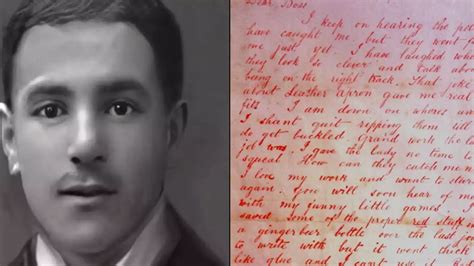 Dear Boss
I keep on hearing the
have caught me but they wont
me just yet. I have laughed
they look so clever and talk
being on the right track. That
about Leather apron gave me real
fits I am down on whores
I shant quit ripping them
do get buckled Grand work the
job was. I gave the lady no time
squeal How can they catch me
I love my work and want to
again. You will soon hear of
with my funny little games
saved some of the proper red stuff
a ginger beer bottle over the last
to write with but it went thick
like glue and I cant use it.